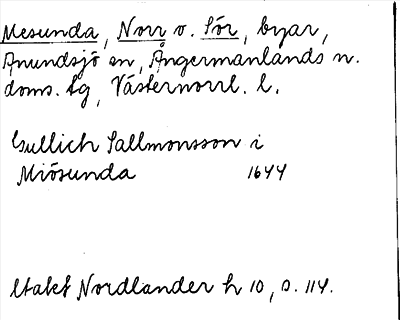 Mesunda, Norr o. Sör, byar,
Anundsjö sn, Ångermanlands n.
doms. tg, Västernorrl. l.
Gullich Sallmonsson i
Miösunda 1644
Utakt Nordlander h 10, s. 114.